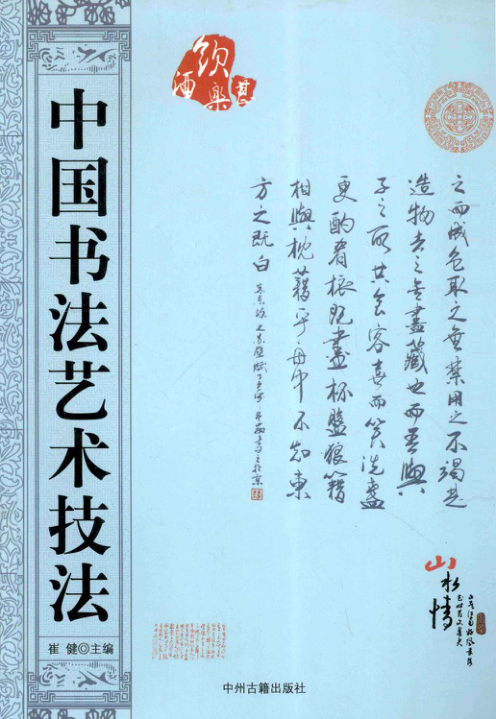 中国书法艺术技法
崔 健◎主编
饮酒
乐其
之而成色取之无禁用之不竭是
造物者之无盡藏也而吾與
子之所共食客喜而笑洗盏
更酌肴核既盡杯盤狼籍
相與枕藉乎舟中不知東
方之既白
山水情
中州古籍出版社